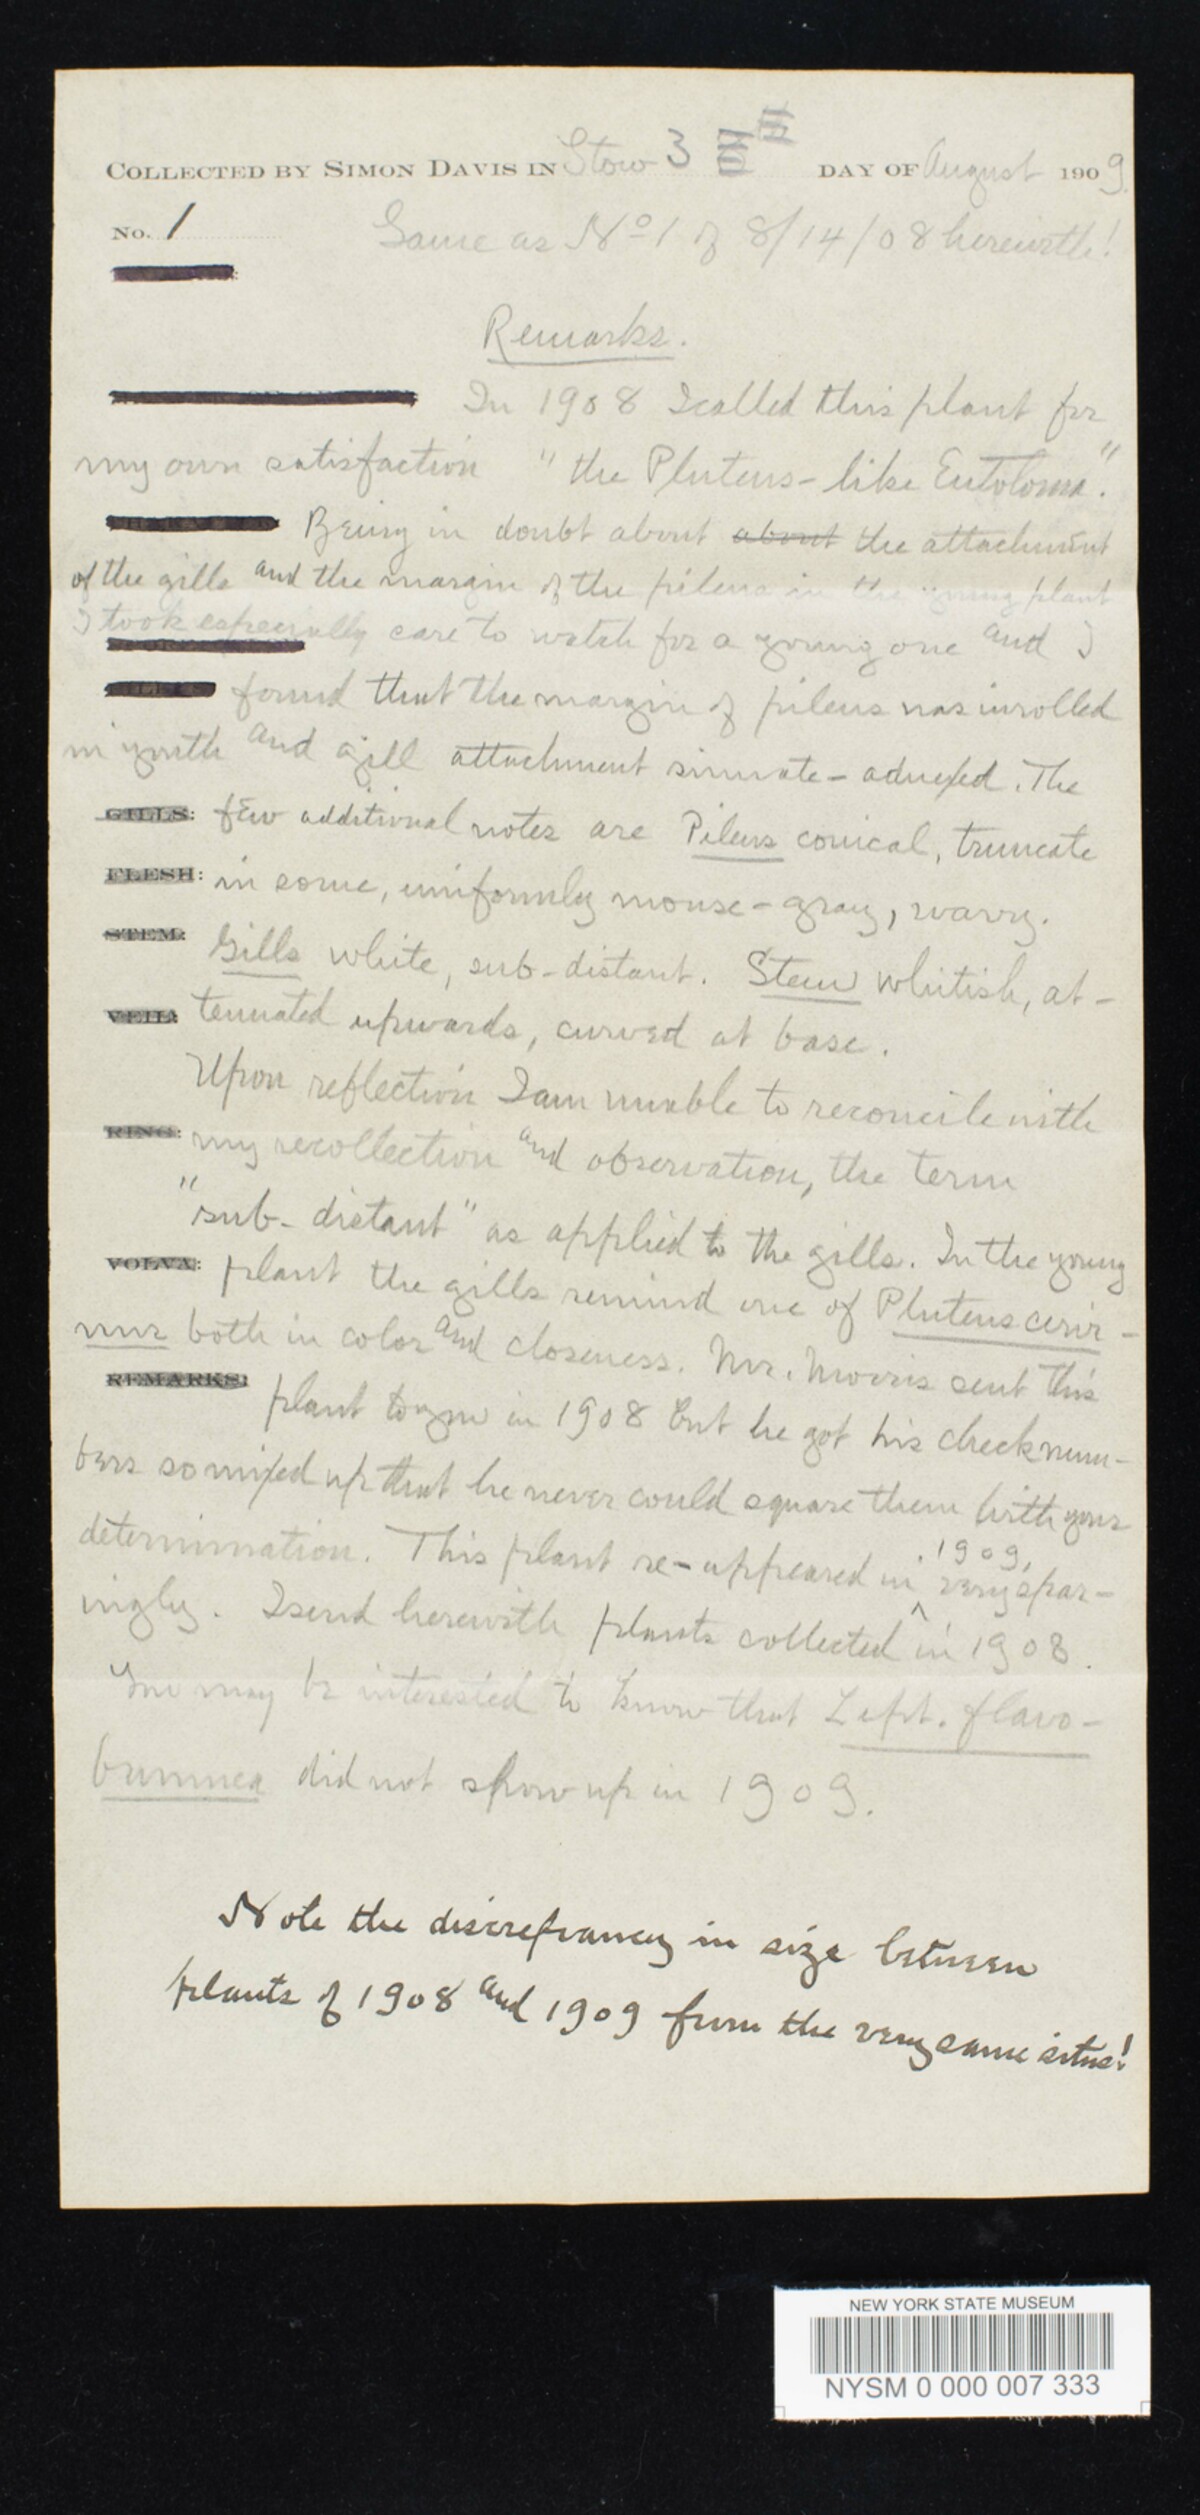 COLLECTED BY SIMON DAVIS IN Stow 3 DAY OF August 1909.
No. 1 Same as No 1 of 8/14/08 herewith!
Remarks.
In 1908 I called this plant for
my own satisfaction "the Pluteus-like Entoloma".
Being in doubt about about the attachment
of the gills and the margin of the pileus in the young plant
I took especially care to watch for a young one and I
found that the margin of pileus was inrolled
in youth and gill attachment sinuate-adnexed. The
GILLS: few additional notes are Pileus conical, truncate
FLESH: in some, uniformly mouse-gray, wavy.
STEM: Gills white, sub-distant. Stem whitish, at-
VEIL: tenuated upwards, curved at base.
Upon reflection I am unable to reconcile with
RING: my recollection and observation, the term
"sub-distant" as applied to the gills. In the young
VOLVA: plant the gills remind one of Pluteus cervi-
nus both in color and closeness. Mr. Morris sent this
REMARKS: plant to you in 1908 but he got his check num-
bers so mixed up that he never could square them with your
determination. This plant re-appeared in 1909, very spar-
ingly. I send herewith plants collected in 1908.
You may be interested to know that Lept. flavo-
brunnea did not show up in 1909.
Note the discrepancy in size between
plants of 1908 and 1909 from the very same situs!
NEW YORK STATE MUSEUM
NYSM 0 000 007 333